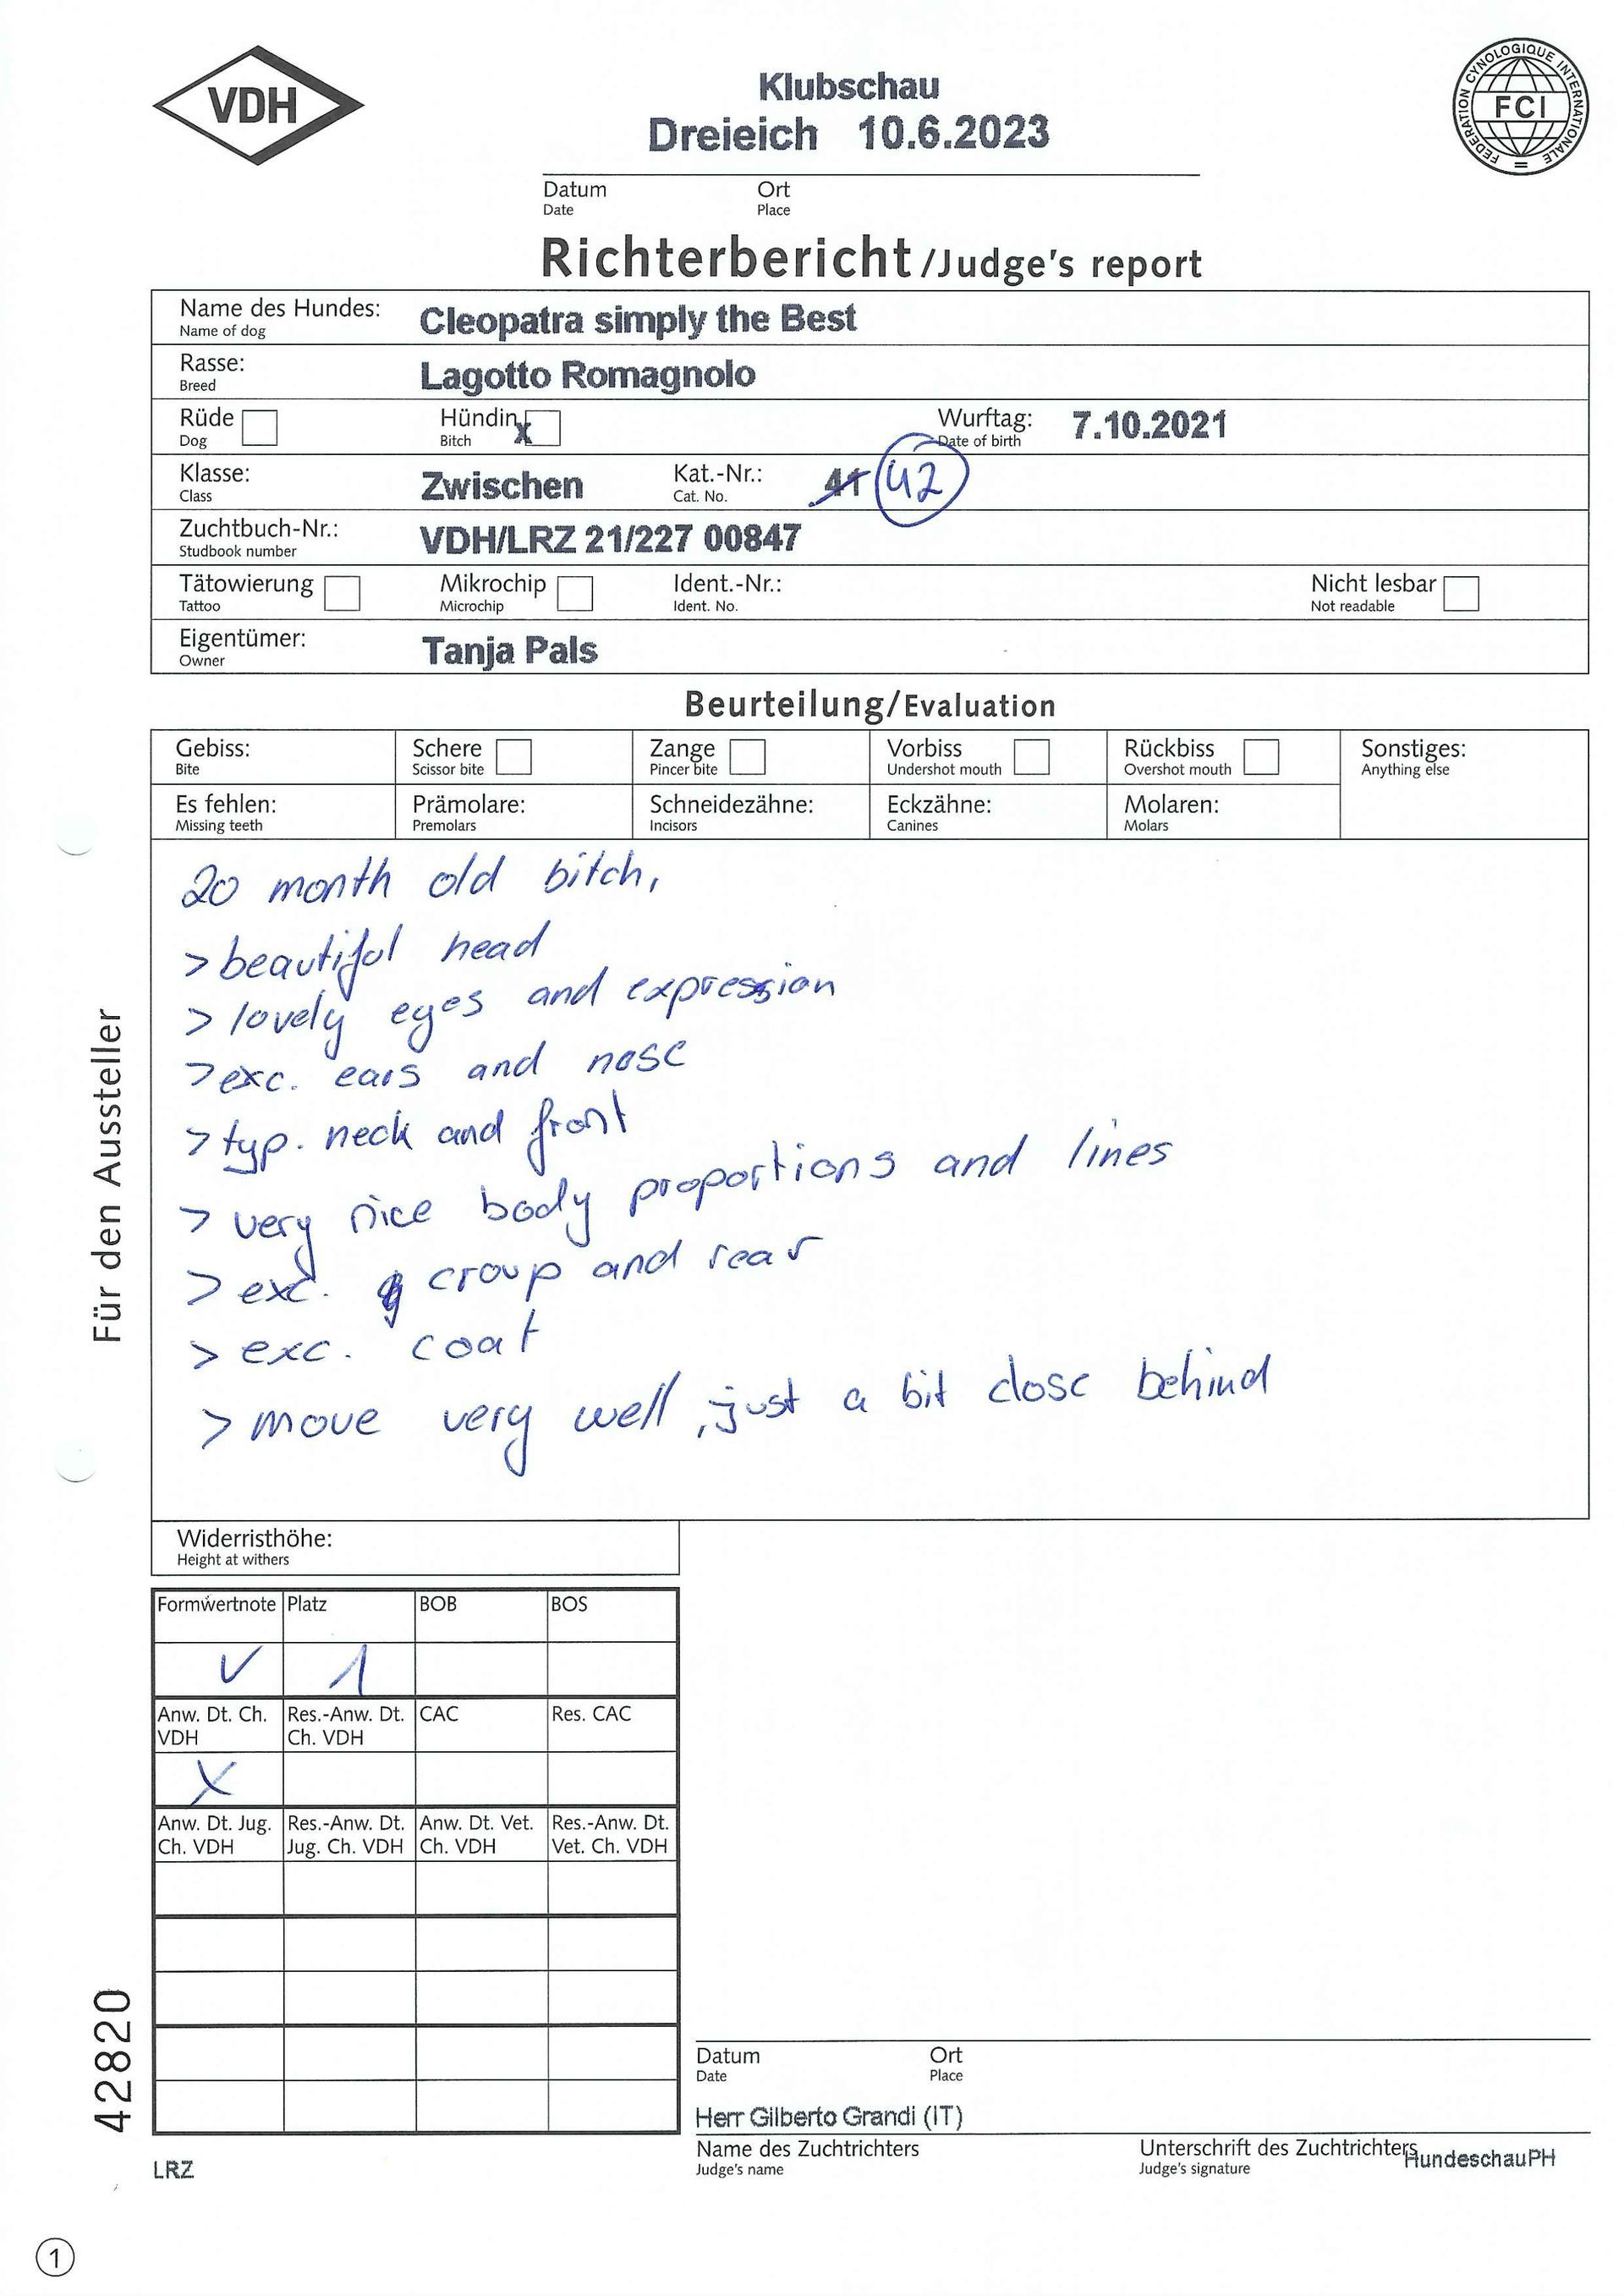 VDH
Klubschau
FEDERATION CYNOLOGIQUE INTERNATIONALE
FCI
Dreieich 10.6.2023
Datum Ort
Date Place
Richterbericht /Judge's report
Name des Hundes: Cleopatra simply the Best
Name of dog
Rasse: Lagotto Romagnolo
Breed
Rüde Hündin X Wurftag: 7.10.2021
Dog Bitch Date of birth
Klasse: Zwischen Kat.-Nr.: 41 42
Class Cat. No.
Zuchtbuch-Nr.: VDH/LRZ 21/227 00847
Studbook number
Tätowierung Mikrochip Ident.-Nr.: Nicht lesbar
Tattoo Microchip Ident. No. Not readable
Eigentümer: Tanja Pals
Owner
Beurteilung/Evaluation
Gebiss: Schere Zange Vorbiss Rückbiss Sonstiges:
Bite Scissor bite Pincer bite Undershot mouth Overshot mouth Anything else
Es fehlen: Prämolare: Schneidezähne: Eckzähne: Molaren:
Missing teeth Premolars Incisors Canines Molars
20 month old bitch,
> beautiful head
> lovely eyes and expression
> exc. ears and nose
> typ. neck and front
> very nice body proportions and lines
> exc. croup and rear
> exc. coat
> move very well, just a bit close behind
Für den Aussteller
Widerristhöhe:
Height at withers
Formwertnote Platz BOB BOS
V 1
Anw. Dt. Ch. Res.-Anw. Dt. CAC Res. CAC
VDH Ch. VDH
X
Anw. Dt. Jug. Res.-Anw. Dt. Anw. Dt. Vet. Res.-Anw. Dt.
Ch. VDH Jug. Ch. VDH Ch. VDH Vet. Ch. VDH
42820
Datum Ort
Date Place
Herr Gilberto Grandi (IT)
Name des Zuchtrichters Unterschrift des Zuchtrichters
Judge's name Judge's signature
HundeschauPH
LRZ
1